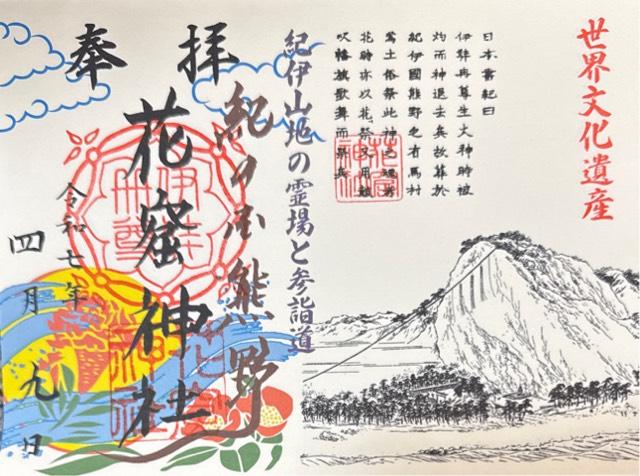 世界文化遺産
日本書紀曰
伊弉冉尊生火神時被
灼而神退去矣故葬於
紀伊國熊野之有馬村
焉土俗祭此神之魂者
花時亦以花祭又用鼓
吹幡旗歌舞而祭矣
紀伊山地の霊場と参詣道
紀の国熊野
奉拝
花窟神社
伊弉冉尊
令和七年
四月九日